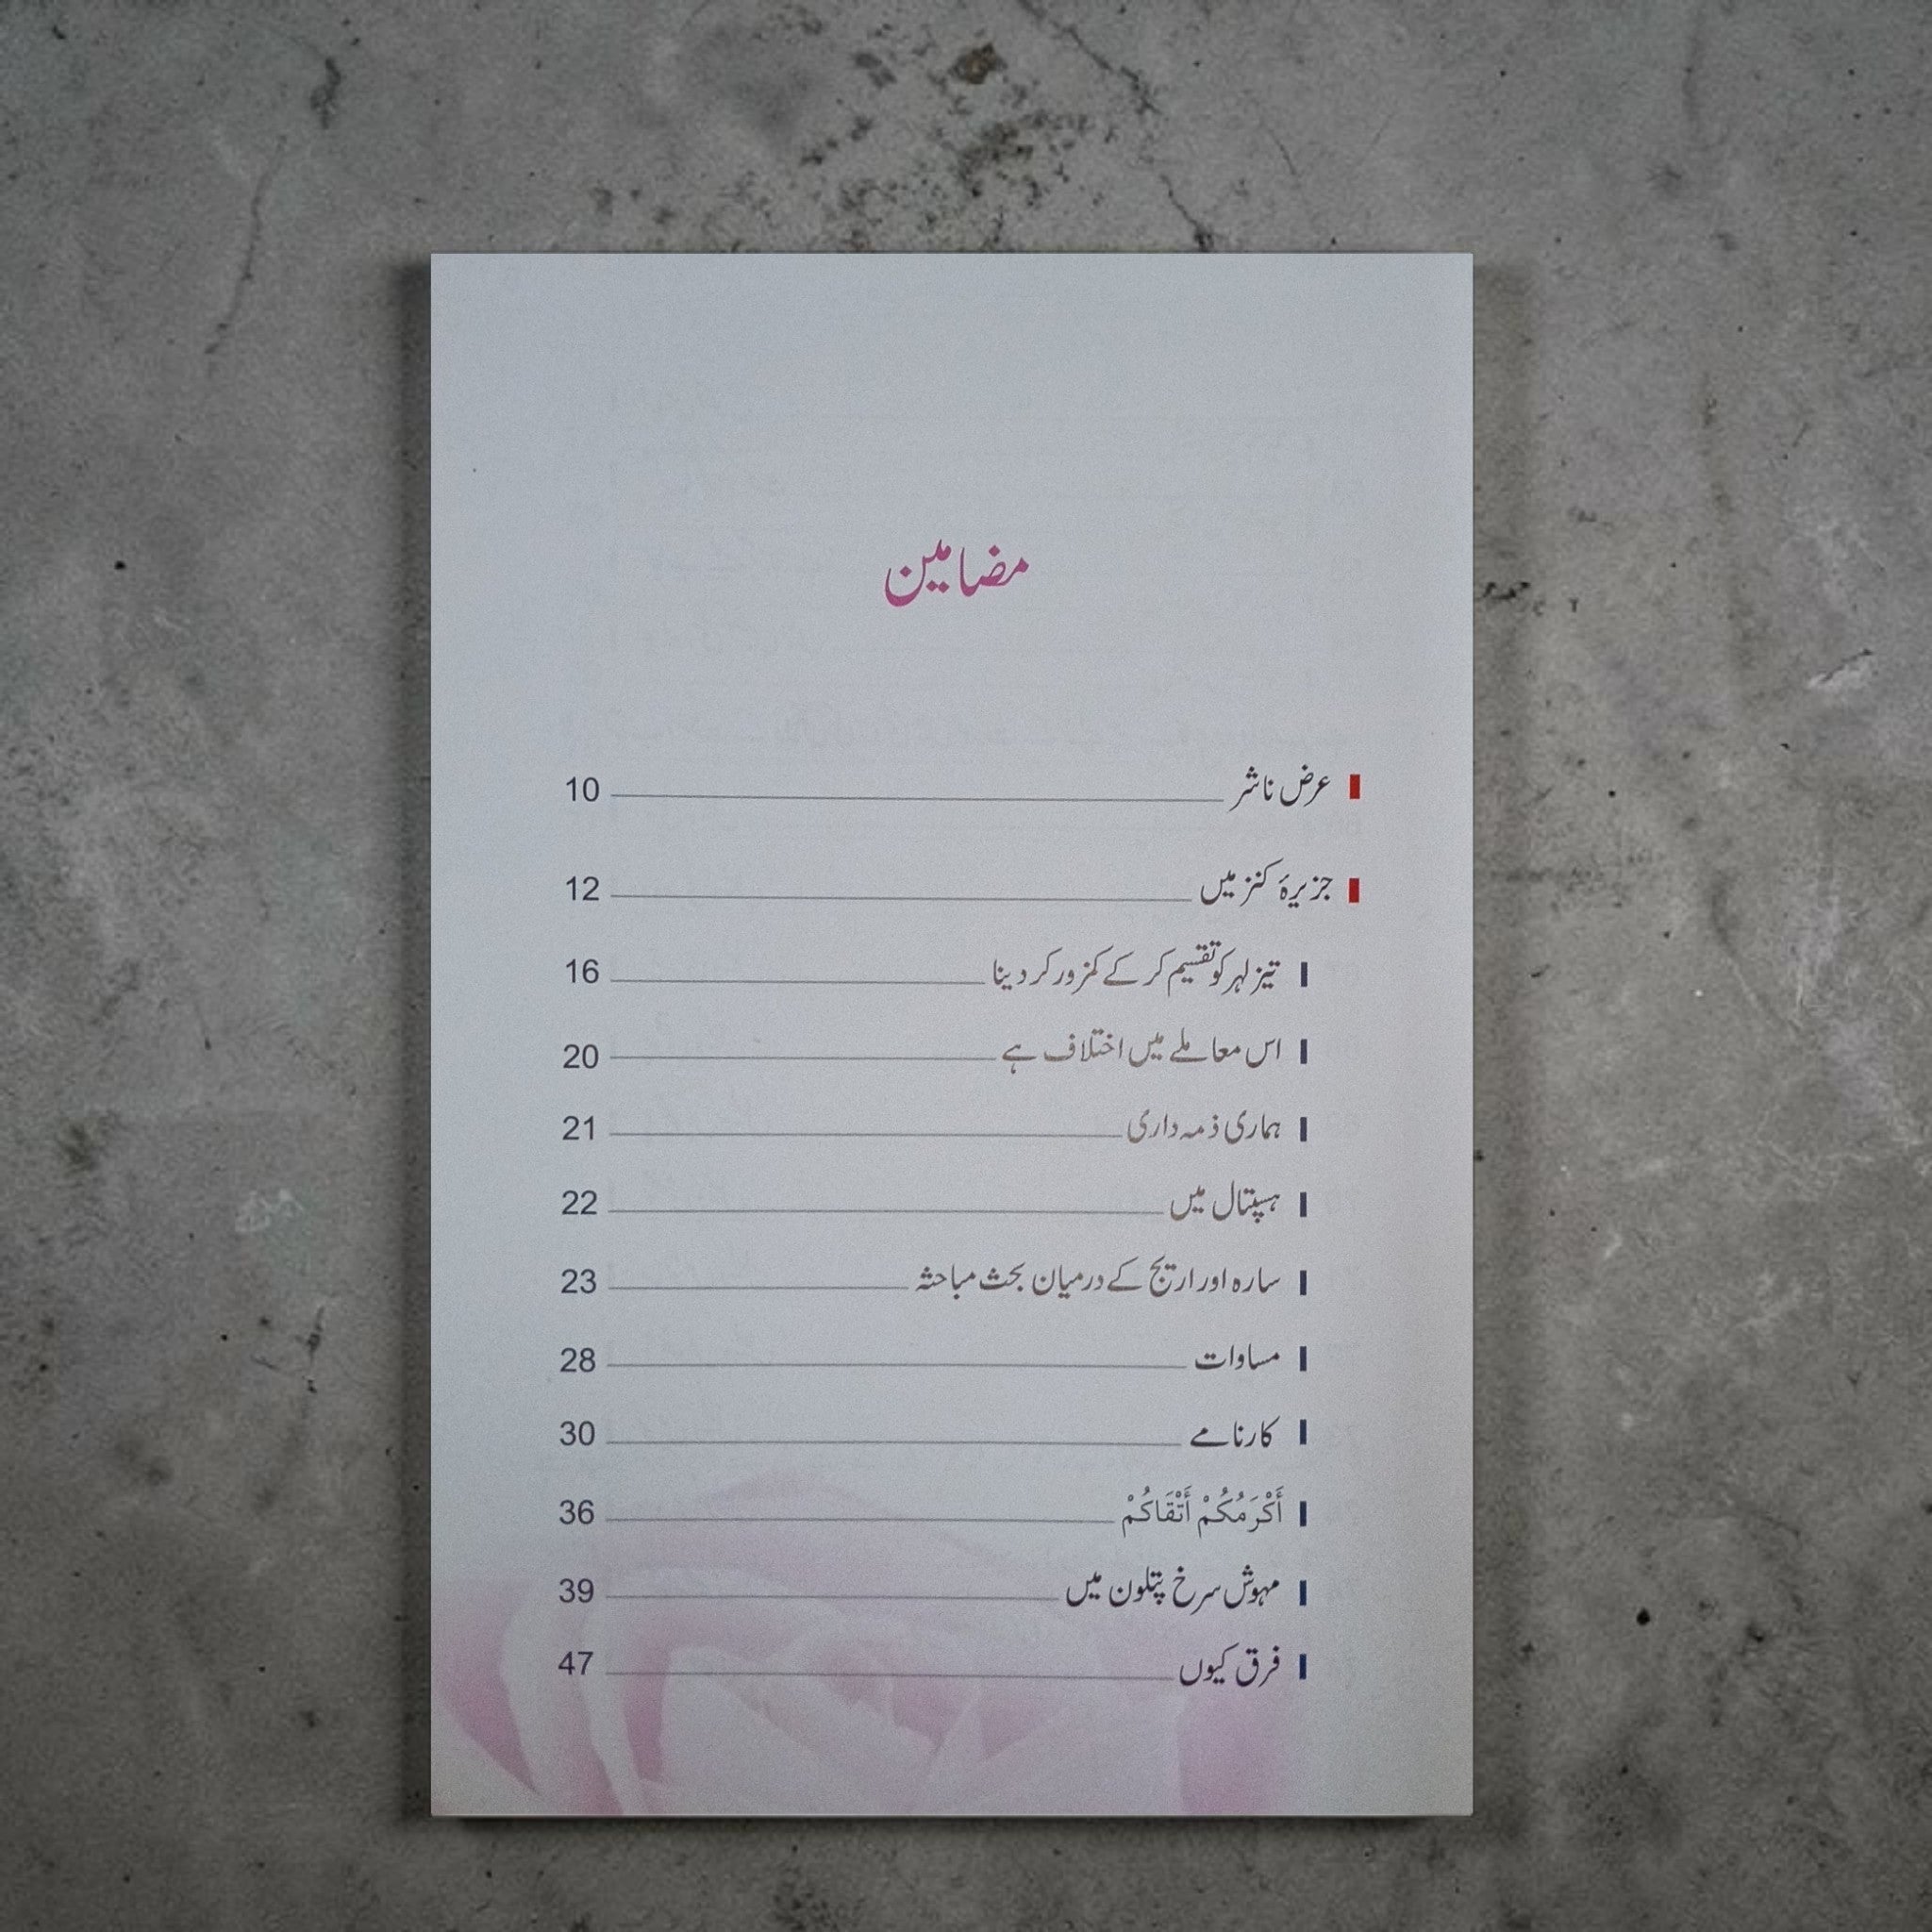 مضامین
عرض ناشر 10
جزیرۂ کنز میں 12
تیز لہر کو تقسیم کر کے کمزور کر دینا 16
اس معاملے میں اختلاف ہے 20
ہماری ذمہ داری 21
ہسپتال میں 22
سارہ اور اریج کے درمیان بحث مباحثہ 23
مساوات 28
کارنامے 30
أَكْرَمُكُمْ أَتْقَاكُمْ 36
مہوش سرخ پتلون میں 39
فرق کیوں 47